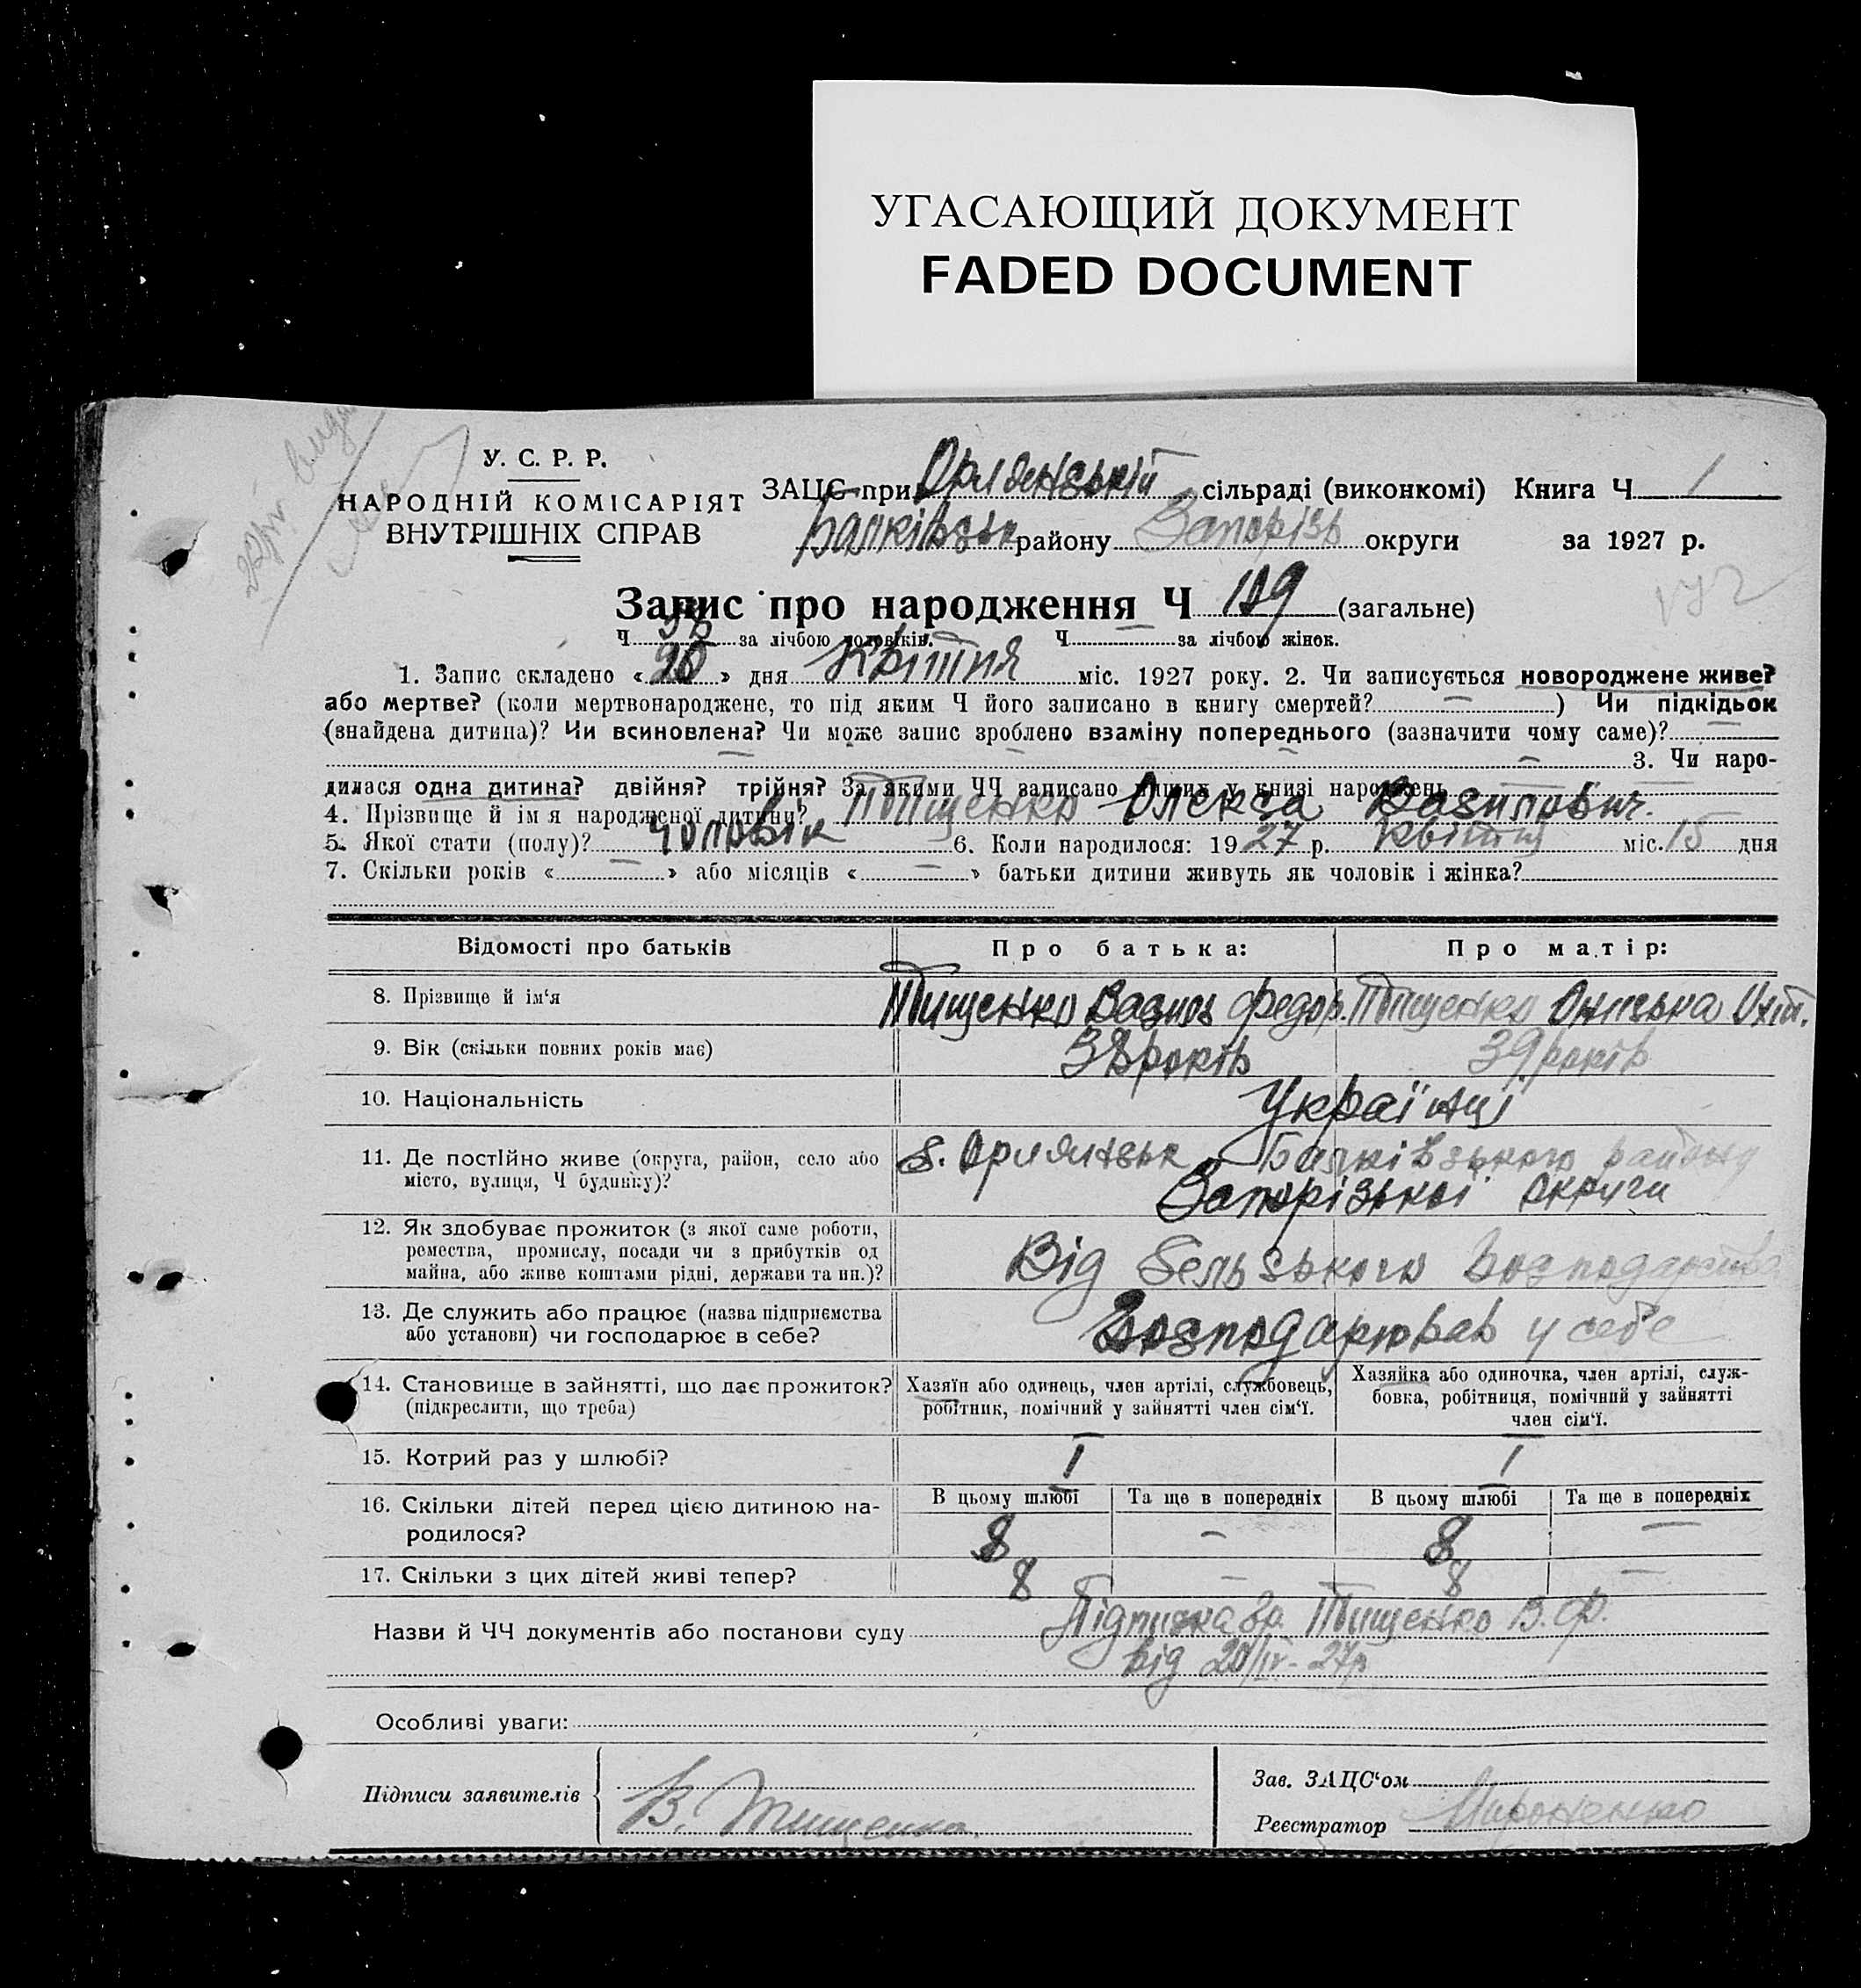 УГАСАЮЩИЙ ДОКУМЕНТ
FADED DOCUMENT
У. С. Р. Р.
НАРОДНІЙ КОМІСАРІЯТ
ВНУТРІШНІХ СПРАВ
ЗАЦС при Орлянській сільраді (виконкомі) Книга Ч 1
Балківськ району Запоріз округи за 1927 р.
Запис про народження Ч 109 (загальне)
Ч за лічбою чоловіків. Ч — за лічбою жінок.
1. Запис складено « 20 » дня Квітня міс. 1927 року. 2. Чи записується новороджене живе?
або мертве? (коли мертвонароджене, то під яким Ч його записано в книгу смертей? — ) Чи підкідьок
(знайдена дитина)? Чи всиновлена? Чи може запис зроблено взаміну попереднього (зазначити чому саме)? —
— 3. Чи наро-
дилася одна дитина? двійня? трійня? За якими ЧЧ записано инших у книзі народжень
4. Прізвище й ім я народженої дитини? Тищенко Олекса Василович.
5. Якої стати (полу)? Чоловік 6. Коли народилося: 1927 р. Квітня міс. 15 дня
7. Скільки років « — » або місяців « — » батьки дитини живуть як чоловік і жінка?
Відомості про батьків Про батька: Про матір:
8. Прізвище й ім'я Тищенко Василь Федор. Тищенко
9. Вік (скільки повних років має) 38 років 39 років
10. Національність Українці
11. Де постІйно живе (округа, район, село або місто, вулиця, Ч будинку)? с. Орлянськ Балківського району
Запорізької округи
12. Як здобуває прожиток (з якої саме роботи,
ремества, промислу, посади чи з прибутків од
майна, або живе коштами рідні, держави та ин.)? Від сельського господарства
13. Де служить або працює (назва підприємства
або установи) чи господарює в себе? Господарював у себе
14. Становище в зайнятті, що дає прожиток?
(підкреслити, що треба)
Хазяїн або одинець, член артілі, службовець,
робітник, помічний у зайнятті член сім'ї.
Хазяйка або одиночка, член артілі, служ-
бовка, робітниця, помічний у зайнятті
член сім'ї.
15. Котрий раз у шлюбі? I I
16. Скільки дітей перед цією дитиною на-
родилося?
В цьому шлюбі Та ще в попередніх В цьому шлюбі Та ще в попередніх
8 — 8 —
17. Скільки з цих дітей живі тепер? 8 — 8 —
Назви й ЧЧ документів або постанови суду Підписка гр. Тищенко В. Ф.
від 20/IV - 27р
Особливі уваги:
Підписи заявителів В. Тищенко.
Зав. ЗАЦС'ом
Реєстратор Мироненко